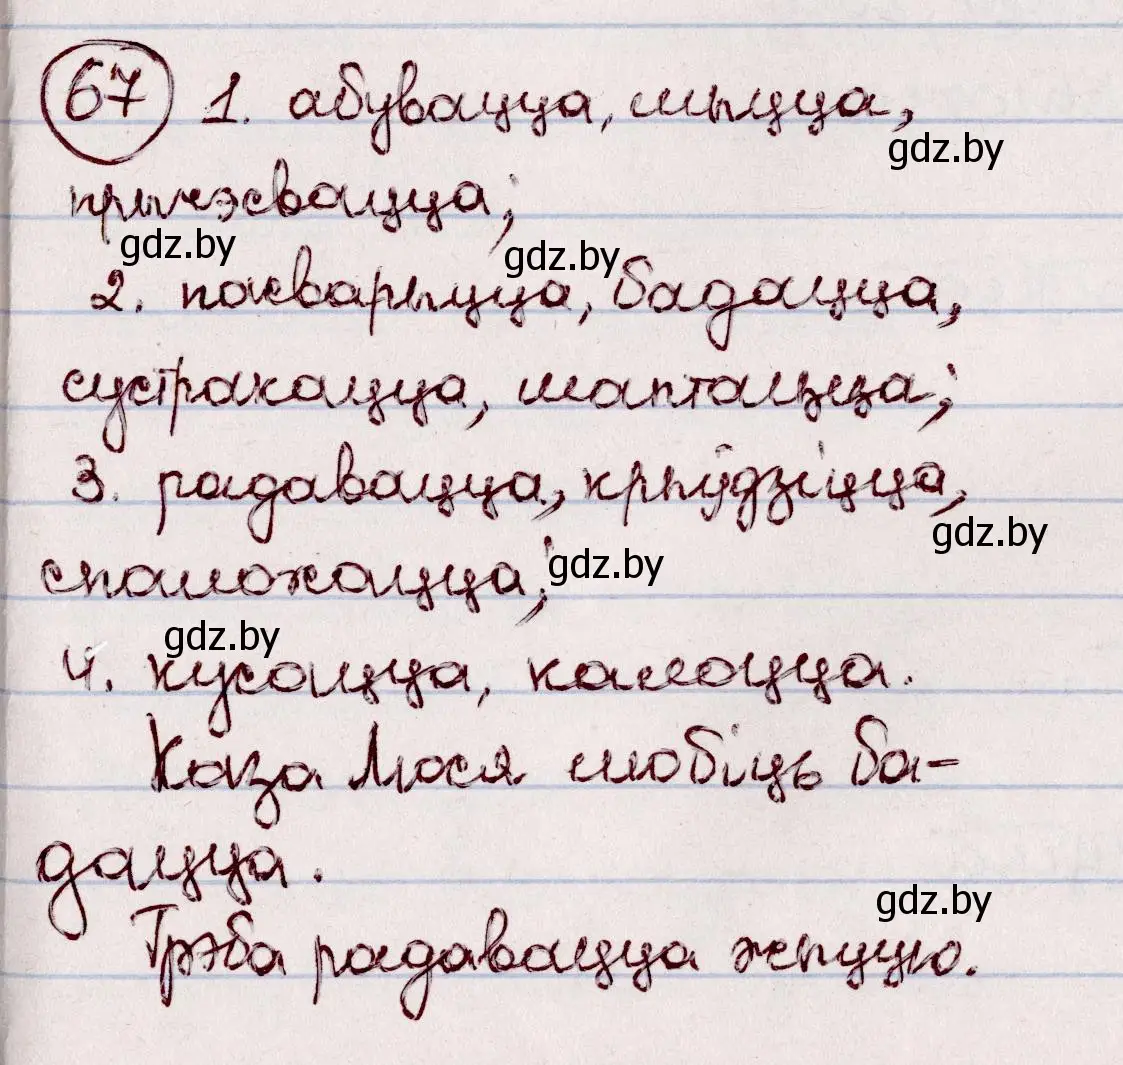 67 1. абувацца, мыцца,
gdz.by
прычэсвацца;
gdz.by gdz.by
2. пасварыцца, бадацца,
сустракацца, шаптацца;
3. радавацца, крыўдзіцца,
gdz.by
спалохацца;
gdz.by
gdz.by
4. кусацца, калоцца.
Каза Люся любіць ба-
дацца.
gdz.by
Трэба радавацца жыццю.